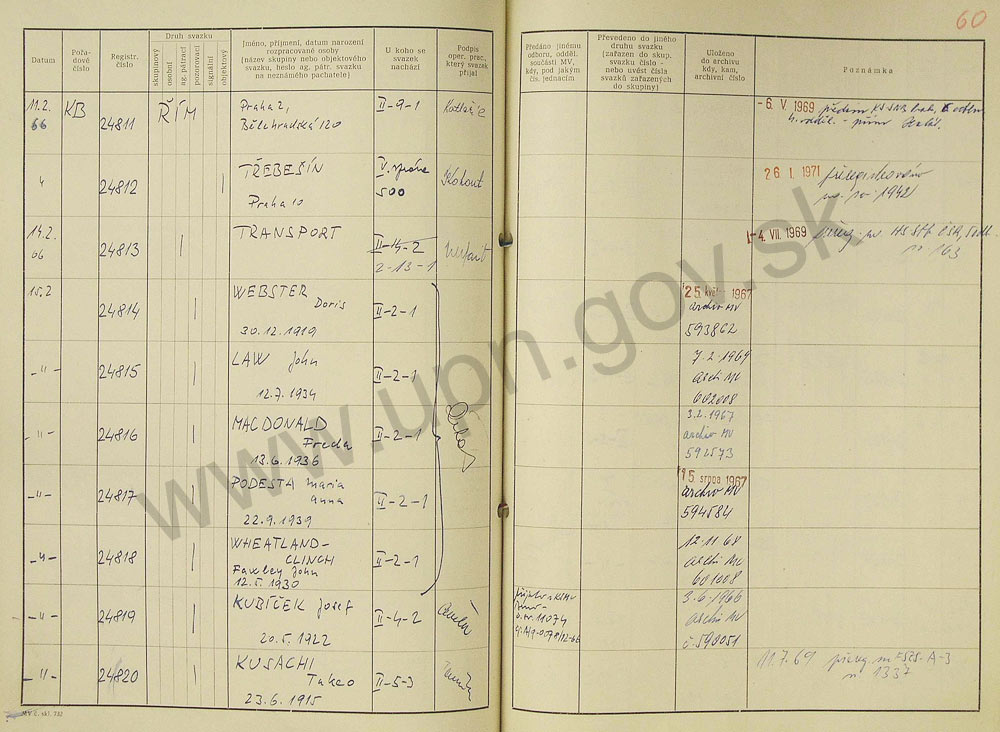 60
Datum
Pořa-
dové
číslo
Registr.
číslo
Druh svazku
skupinový
osobní
ag. pátrací
pozorovací
signální
objektový
Jméno, příjmení, datum narození
rozpracované osoby
(název skupiny nebo objektového
svazku, heslo ag. pátr. svazku
na neznámého pachatele)
U koho se
svazek
nachází
Podpis
oper. prac.,
který svazek
přijal
Předáno jinému
odboru, odděl.
součásti MV,
kdy, pod jakým
čís. jednacím
Převedeno do jiného
druhu svazku
(zařazen do skup.
svazku číslo -
nebo uvést čísla
svazků zařazených
do skupiny)
Uloženo
do archivu
kdy, kam,
archivní číslo
Poznámka
11.2.
66
KB
24811
ŘÍM
Praha 2,
Bělehradská 120
II-9-1
-6. V. 1969
24812
TŘEBEŠÍN
Praha 10
V. správa
500
Kohout
26. I. 1971 přeregistrováno
1942
14.2.
66
24813
TRANSPORT
II-14-2
2-13-1
-4. VII. 1969
163
15.2
24814
WEBSTER
Doris
30.12.1919
II-2-1
25. květ. 1967
archiv MV
593862
-"-
24815
LAW John
12.7.1934
II-2-1
7.2.1969
archiv MV
602008
-"-
24816
MACDONALD
Freda
13.6.1936
II-2-1
3.2.1967
archiv MV
592573
-"-
24817
PODESTA Maria
Anna
22.9.1939
II-2-1
15. srpna 1967
archiv MV
594584
-"-
24818
WHEATLAND-
CLINCH
Fawley John
12.5.1930
II-2-1
12.11.68
archiv MV
601008
-"-
24819
KUBÍČEK Josef
20.5.1922
II-4-2
3.6.1966
archiv MV
č. 590051
-"-
24820
KUSACHI
Takeo
23.6.1915
II-5-3
11.7.69
1337
MV č. skl. 732
www.upn.gov.sk